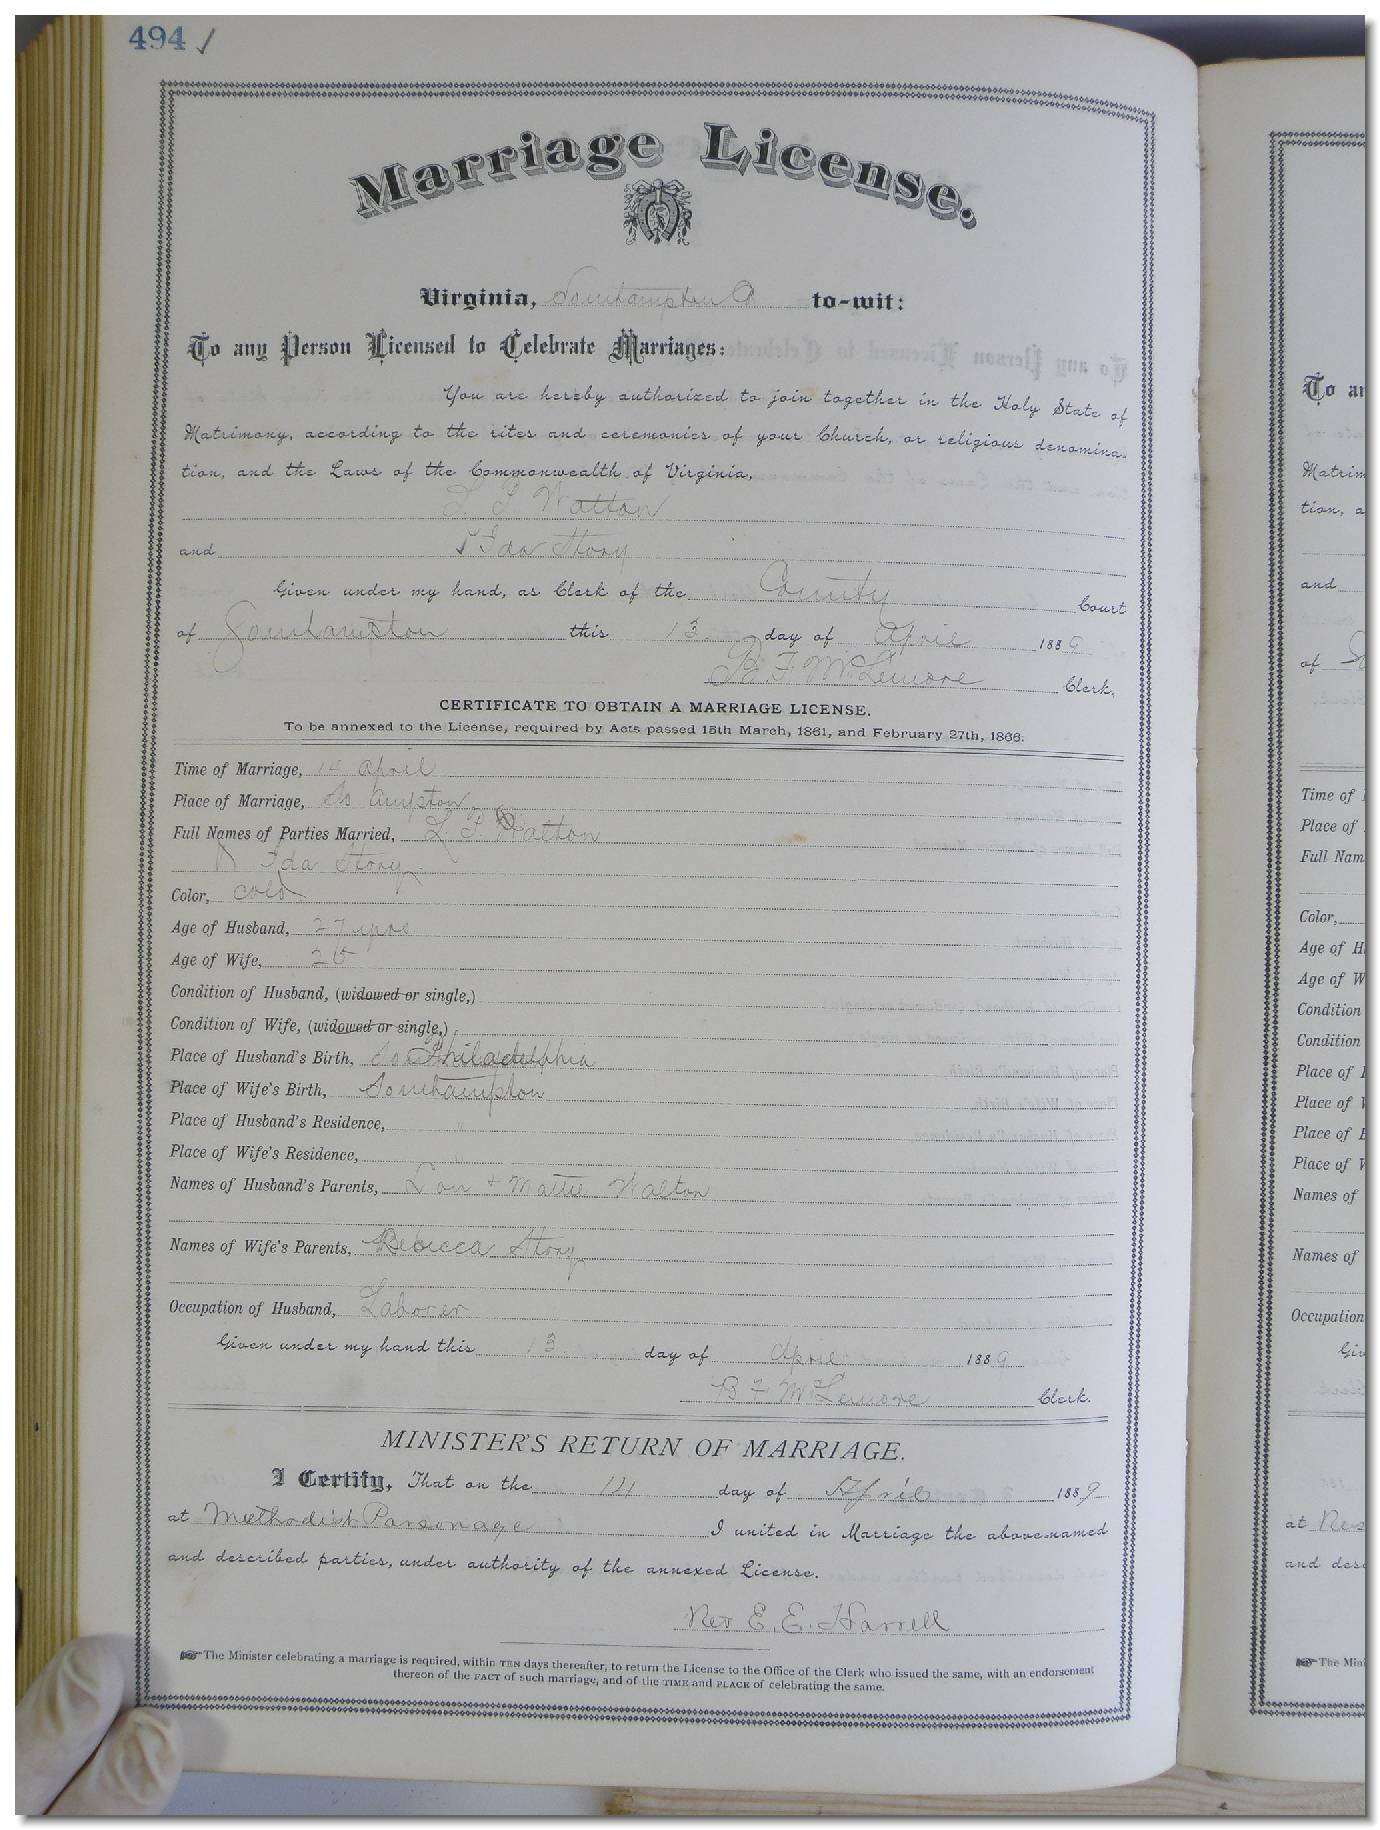 494 ✓
Marriage License.
Virginia, Southampton Co to-wit:
To any Person Licensed to Celebrate Marriages:
You are hereby authorized to join together in the Holy State of
Matrimony, according to the rites and ceremonies of your Church, or religious denomina-
tion, and the Laws of the Commonwealth of Virginia,
L P Watton
and Ida Story
Given under my hand, as Clerk of the County Court
of Southampton this 13 day of April 1889
B F McLemore Clerk.
CERTIFICATE TO OBTAIN A MARRIAGE LICENSE.
To be annexed to the License, required by Acts passed 15th March, 1861, and February 27th, 1866.
Time of Marriage, 14 April
Place of Marriage, So ampton
Full Names of Parties Married, L P Watton
Ida Story
Color, cold
Age of Husband, 27 yrs
Age of Wife,
Condition of Husband, (widowed or single,)
Condition of Wife, (widowed or single,)
Place of Husband's Birth, Philadelphia
Place of Wife's Birth, Southampton
Place of Husband's Residence, "
Place of Wife's Residence, "
Names of Husband's Parents, Lou + Mattie Walton
Names of Wife's Parents, Rebecca Story
Occupation of Husband, Laborer
Given under my hand this 13 day of April 1889
B F McLemore Clerk.
MINISTER'S RETURN OF MARRIAGE.
I Certify, That on the 14 day of April 1889
at Methodist Parsonage I united in Marriage the above-named
and described parties, under authority of the annexed License.
Rev E. E. Harrell
☞ The Minister celebrating a marriage is required, within TEN days thereafter, to return the License to the Office of the Clerk who issued the same, with an endorsement
thereon of the FACT of such marriage, and of the TIME and PLACE of celebrating the same.
To
Matrim
tion, a
and
of
Time of
Place of
Full Nam
Color,
Age of H
Age of W
Condition
Condition
Place of
Place of
Place of
Place of
Names of
Names of
Occupation
Giv
at
and desc
☞ The Mini